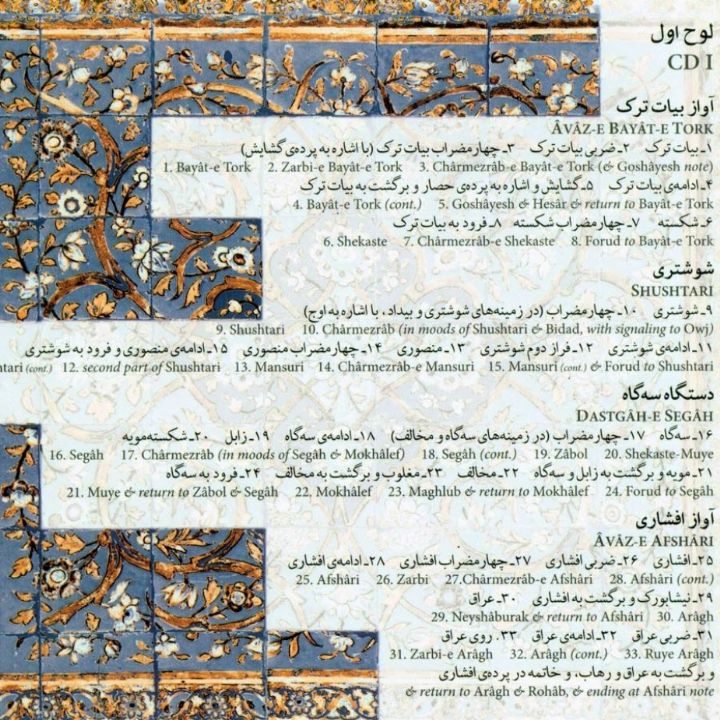 لوح اول
CD I
آواز بیات ترک
ÂVÂZ-E BAYÂT-E TORK
۱ـ بیات ترک ۲ـ ضربی بیات ترک ۳ـ چهارمضراب بیات ترک (با اشاره به پرده‌ی گشایش)
1. Bayât-e Tork 2. Zarbi-e Bayât-e Tork 3. Chârmezrâb-e Bayât-e Tork (& Goshâyesh note)
۴ـ ادامه‌ی بیات ترک ۵ـ گشایش و اشاره به پرده‌ی حصار و برگشت به بیات ترک
4. Bayât-e Tork (cont.) 5. Goshâyesh & Hesâr & return to Bayât-e Tork
۶ـ شکسته ۷ـ چهارمضراب شکسته ۸ـ فرود به بیات ترک
6. Shekaste 7. Chârmezrâb-e Shekaste 8. Forud to Bayât-e Tork
شوشتری
SHUSHTARI
۹ـ شوشتری ۱۰ـ چهارمضراب (در زمینه‌های شوشتری و بیداد، با اشاره به اوج)
9. Shushtari 10. Chârmezrâb (in moods of Shushtari & Bidad, with signaling to Owj)
۱۱ـ ادامه‌ی شوشتری ۱۲ـ فراز دوم شوشتری ۱۳ـ منصوری ۱۴ـ چهارمضراب منصوری ۱۵ـ ادامه‌ی منصوری و فرود به شوشتری
ntari (cont.) 12. second part of Shushtari 13. Mansuri 14. Chârmezrâb-e Mansuri 15. Mansuri (cont.) & Forud to Shushtari
دستگاه سه‌گاه
DASTGÂH-E SEGÂH
۱۶ـ سه‌گاه ۱۷ـ چهارمضراب (در زمینه‌های سه‌گاه و مخالف) ۱۸ـ ادامه‌ی سه‌گاه ۱۹ـ زابل ۲۰ـ شکسته‌مویه
16. Segâh 17. Chârmezrâb (in moods of Segâh & Mokhâlef) 18. Segâh (cont.) 19. Zâbol 20. Shekaste-Muye
۲۱ـ مویه و برگشت به زابل و سه‌گاه ۲۲ـ مخالف ۲۳ـ مغلوب و برگشت به مخالف ۲۴ـ فرود به سه‌گاه
21. Muye & return to Zâbol & Segâh 22. Mokhâlef 23. Maghlub & return to Mokhâlef 24. Forud to Segâh
آواز افشاری
ÂVÂZ-E AFSHÂRI
۲۵ـ افشاری ۲۶ـ ضربی افشاری ۲۷ـ چهارمضراب افشاری ۲۸ـ ادامه‌ی افشاری
25. Afshâri 26. Zarbi 27.Chârmezrâb-e Afshâri 28. Afshâri (cont.)
۲۹ـ نیشابورک و برگشت به افشاری ۳۰ـ عراق
29. Neyshâburak & return to Afshâri 30. Arâgh
۳۱ـ ضربی عراق ۳۲ـ ادامه‌ی عراق ۳۳. روی عراق
31. Zarbi-e Arâgh 32. Arâgh (cont.) 33. Ruye Arâgh
و برگشت به عراق و رهاب، و خاتمه در پرده‌ی افشاری
& return to Arâgh & Rohâb, & ending at Afshâri note